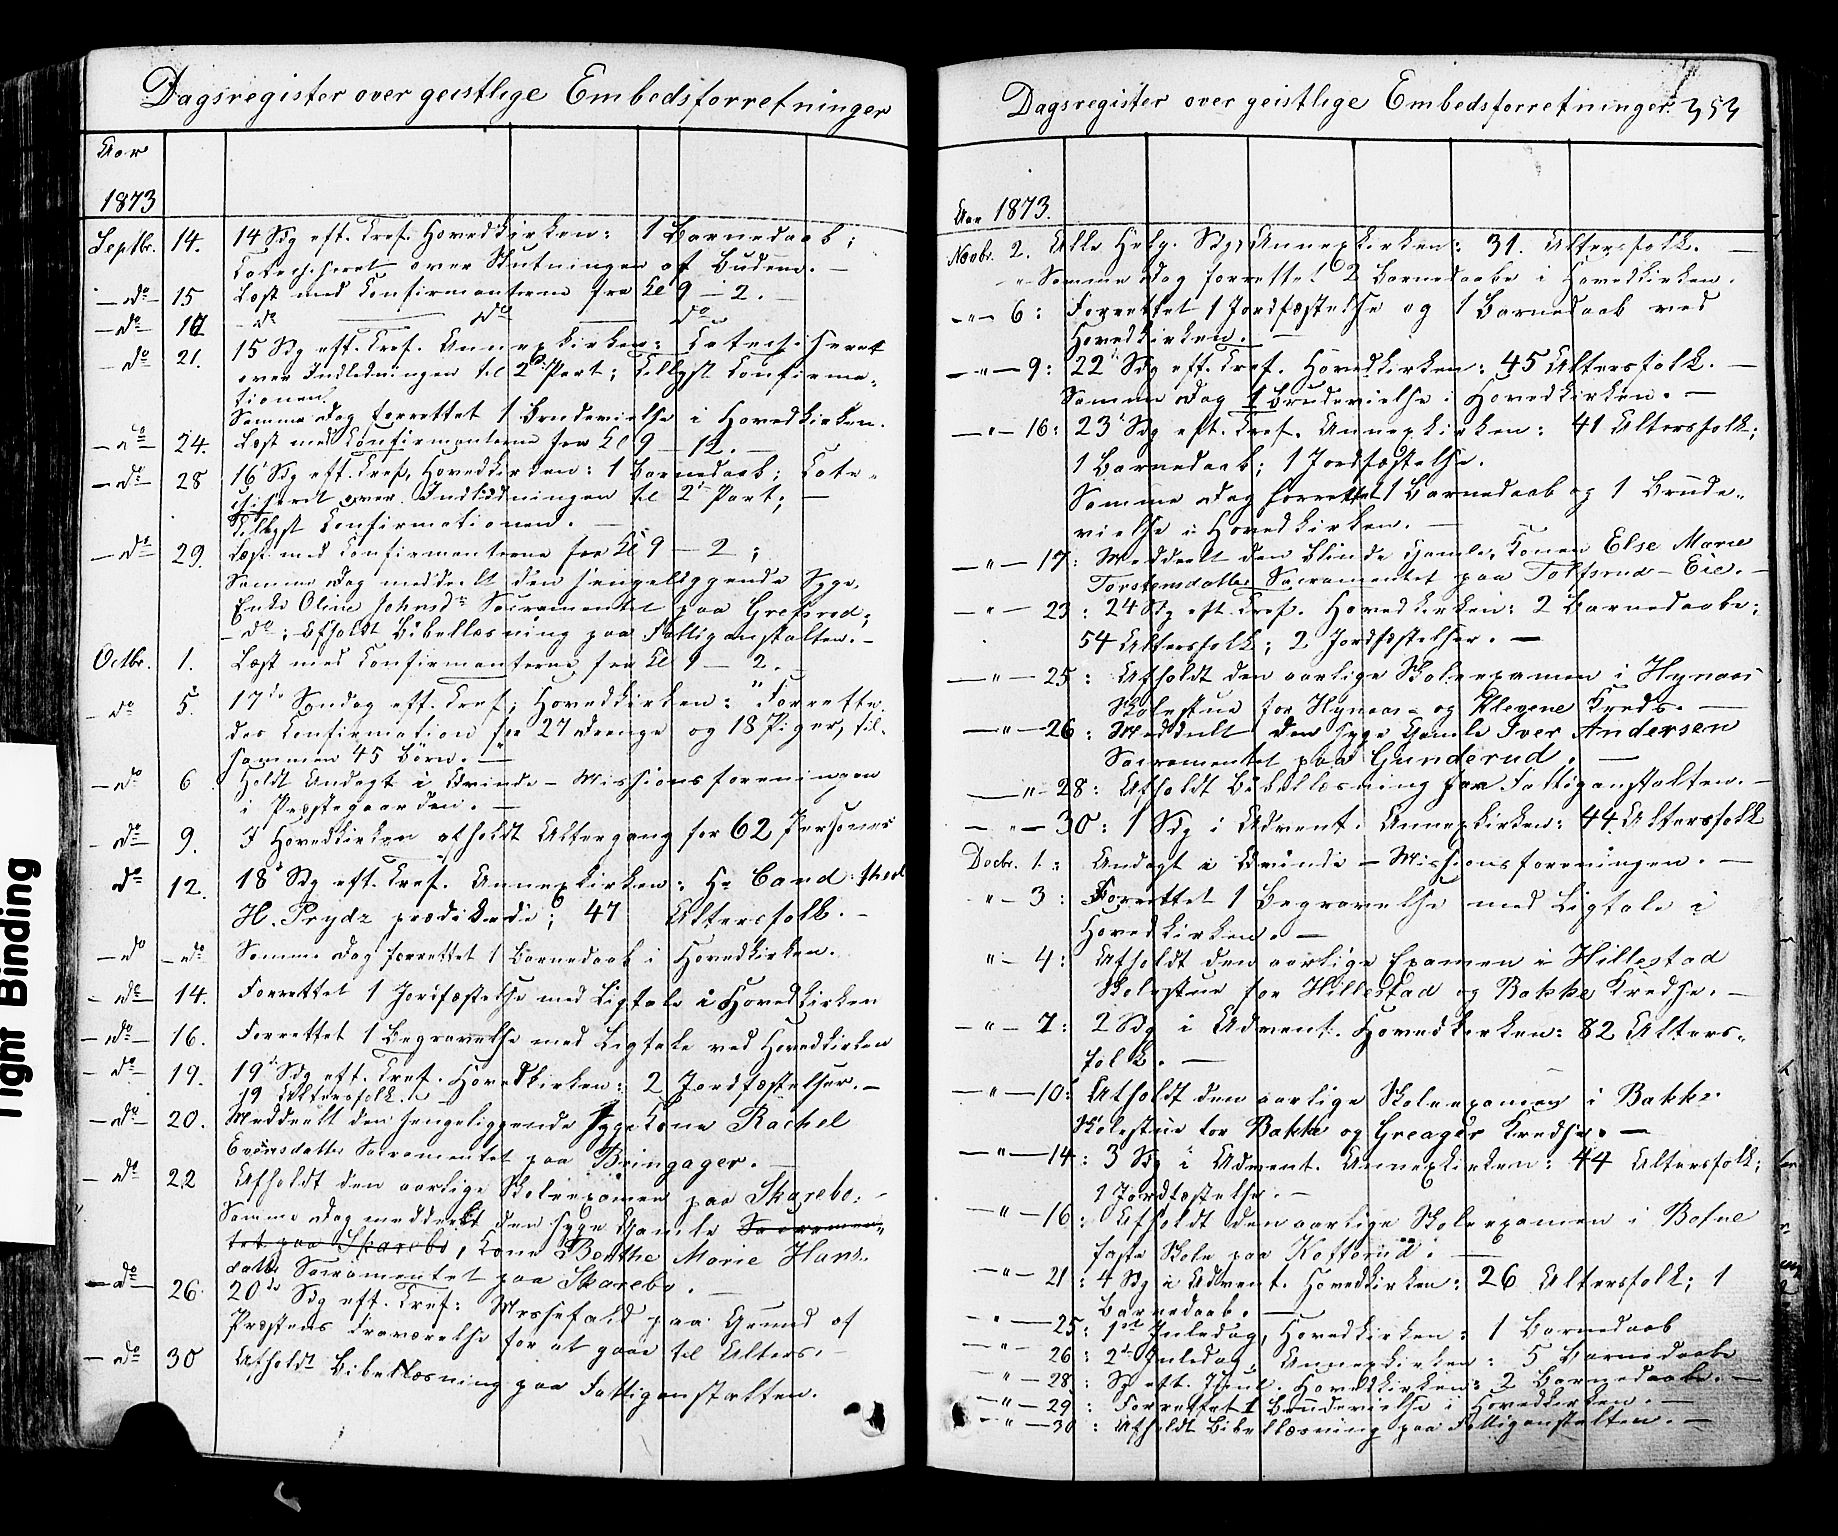 Dagsregister over geistlige Embedsforretninger
Aar
1873
Septbr. 14. 14 Sdg eft. Tref. Hovedkirken: 1 Barnedaab;
Catechiseret over Slutningen af Budene. —
— do — 15 Læst med Confirmanterne fra Kl 9 — 2. —
— do — 17 — do — do — do
— do — 21. 15 Sdg eft. Tref. Annexkirken: Catechiseret
over Indledningen til 2d Part; Tillyst Confirma-
tionen.
Samme Dag forrettet 1 Brudevielse i Hovedkirken.
— do — 24. Læst med Confirmanterne fra Kl 9 — 12. —
— do — 28 16 Sdg eft. Tref. Hovedkirken: 1 Barnedaab; Cate-
chiseret over Indledningen til 2d Part; —
Tillyst Confirmationen. —
— do — 29. Læst med Confirmanterne fra Kl 9 — 2;
Samme Dag meddeelt den sengeliggende Syge
Enke Oline Johnsdr Sacramentet paa Grefsrud;
— do: Afholdt Bibellæsning paa Fattiganstalten. —
Octbr. 1. Læst med Confirmanterne fra Kl 9 — 2. —
— do 5. 17de Søndag eft. Tref. Hovedkirken: Forrette-
des Confirmation for 27 Drenge og 18 Piger, til-
sammen 45 Børn. —
— do 6 Holdt Andagt i Qvinde-Missionsforeningen
i Præstegaarden. —
— do — 9. I Hovedkirken afholdt Altergang for 62 Personer
do 12. 18d Sdg eft. Tref. Annexkirken: Hr Cand. theol
H. Prydz prædikede; 47 Altersfolk. —
— do — do Samme Dag forrettet 1 Barnedaab i Hovedkirken.
— do — 14. Forrettet 1 Jordfæstelse med Ligtale i Hovedkirken
— do — 16. Forrettet 1 Begravelse med Ligtale ved Hovedkirken
— do — 19. 19d Sdg eft. Tref. Hovedkirken: 2 Jordfæstelser. —
19 Altersfolk. —
— do — 20. Meddeelt den sengeliggende syge Kone Rachel
Evensdatter Sacramentet paa Bringager. —
— do 22 Afholdt den aarlige Skoleexamen paa Skarebo. —
Samme Dag meddeelt den syge Gamle Sacramen-
tet paa Skarebo, Kone Berthe Marie Hans-
datter Sacramentet paa Skarebo. —
— do 26. 20de Sdg eft. Tref: Messefald paa Grund af
Præstens Fraværelse for at gaae til Alters. —
— do 30 Afholdt Bibellæsning paa Fattiganstalten.
Dagsregister over geistlige Embedsforretninger. 353
Aar 1873.
Novbr. 2. Alle Helg. Sdg, Annexkirken: 31. Altersfolk. —
" Samme Dag forrettet 2 Barnedaabe i Hovedkirken.
— " — 6: Forrettet 1 Jordfæstelse og 1 Barnedaab ved
Hovedkirken. —
— " — 9: 22d Sdg eft. Tref. Hovedkirken: 45 Altersfolk. —
Samme Dag 1 Brudevielse i Hovedkirken. —
— " — 16: 23d Sdg eft. Tref. Annexkirken: 41 Altersfolk;
1 Barnedaab; 1 Jordfæstelse.
Samme Dag forrettet 1 Barnedaab og 1 Brude-
vielse i Hovedkirken. —
— " — 17: Meddeelt den blinde Gamle, Konen Else Marie
Torstensdatter Sacramentet paa Tolfsrud-Eie. —
— " — 23: 24 Sdg eft. Tref. Hovedkirken: 2 Barnedaabe;
54 Altersfolk; 2 Jordfæstelser. —
— " — 25: Afholdt den aarlige Skoleexamen i Hynaas
Skolestue for Hynaas- og Klevene Kreds. —
— " — 26: Meddeelt den syge Gamle Iver Andersen
Sacramentet paa Gunderud. —
— " — 28: Afholdt Bibellæsning paa Fattiganstalten. —
— " — 30: 1 Sdg i Advent. Annexkirken: 44 Altersfolk
Decbr. 1.: Andagt i Qvinde-Missionsforeningen. —
" — 3: Forrettet 1 Begravelse med Ligtale i
Hovedkirken. —
" — 4: Afholdt den aarlige Examen i Hillestad
Skolestue for Hillestad og Bakke Kredse. —
— " — 7: 2 Sdg i Advent. Hovedkirken: 82 Alters-
folk. —
— " — 10: Afholdt den aarlige Skoleexamen i Bakke
Skolestue for Bakke og Greager Kredse. —
— " — 14: 3 Sdg i Advent. Annexkirken: 44 Altersfolk;
1 Jordfæstelse. —
— " — 16: Afholdt den aarlige Skoleexamen i Bofne
faste Skole paa Kofforud. —
— " — 21: 4 Sdg i Advent. Hovedkirken: 26 Altersfolk; 1
Barnedaab. —
" — 25: 1ste Juledag, Hovedkirken: 1 Barnedaab
— " — 26: 2d Juledag, Annexkirken: 5 Barnedaabe
— " — 28: S. eft. Juul. Hovedkirken: 2 Barnedaabe. —
— " — 29: Forrettet 1 Brudevielse i Hovedkirken. —
— " — 30: Afholdt Bibellæsning paa Fattiganstalten. —
Tight Binding